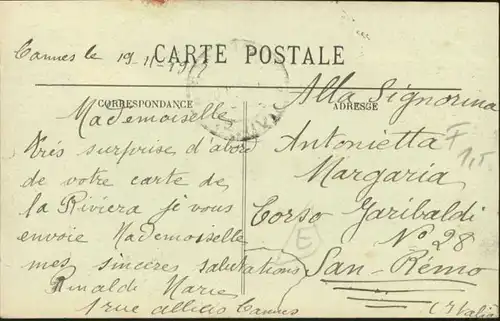 Cannes le 19-11-1912
CARTE POSTALE
CORRESPONDANCE
Mademoiselle
Très surprise d'abord
de votre carte de
la Riviera je vous
envoie Mademoiselle
mes sincères salutations
Rinaldi Marie
1 rue Cannes
ADRESSE
Alla Signorina
Antonietta
Margaria
Corso Garibaldi
N° 28
San-Rémo
(Italia
F
1,5
E